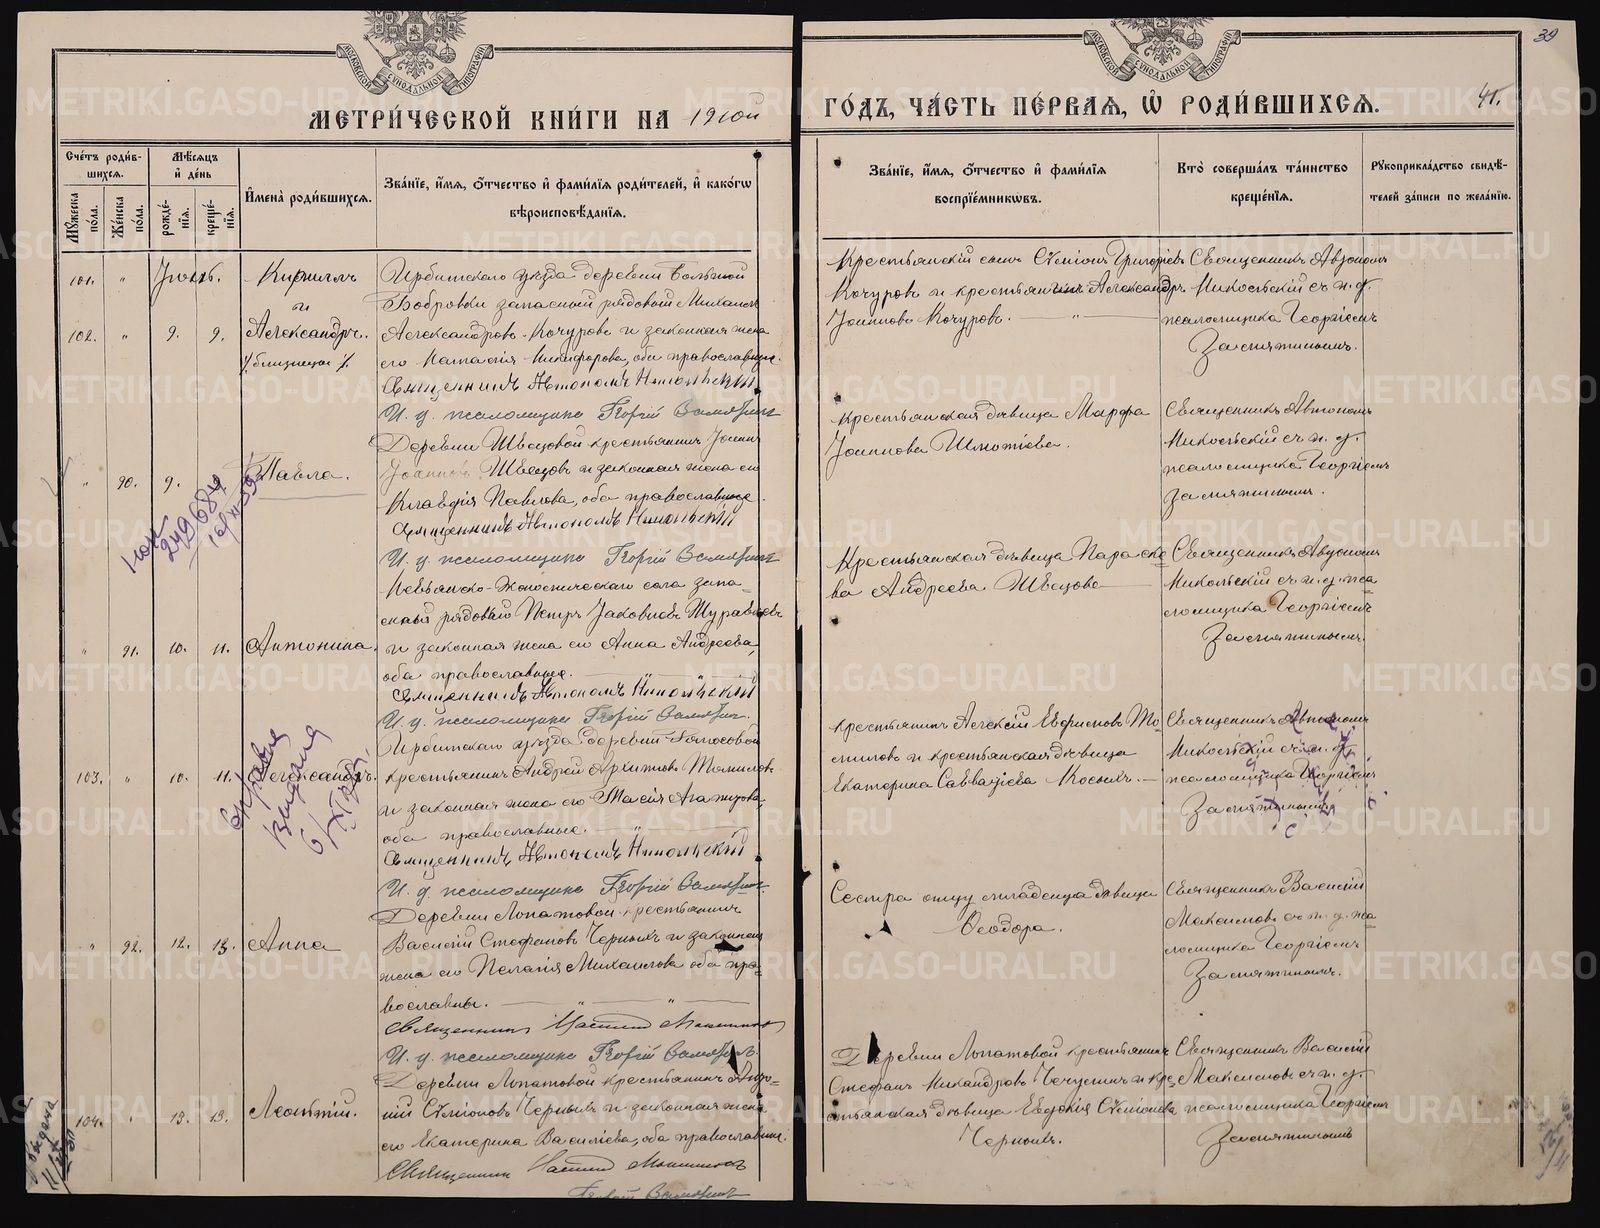 МЕТРИ́ЧЕСКОЙ КНИ́ГИ НА 1910й
ГО́ДЪ, ЧА́СТЬ ПЕ́РВАѦ, Ѡ҆ РОДИ́ВШИХСѦ.
39
41.
Сче́тъ роди́в-
шихсѧ.
Мꙋжеска по́ла.
Же́нска по́ла.
Мѣ́сѧцъ
и҆ де́нь
рожде́-
нїѧ.
креще́-
нїѧ.
И҆мена̀ роди́вшихсѧ.
Зва́нїе, и҆́мѧ, ѻ҆́тчество и҆ фами́лїѧ роди́телей, и҆ како́гѡ
вѣроисповѣ́данїѧ.
Зва́нїе, и҆́мѧ, ѻ҆́тчество и҆ фами́лїѧ
воспрїе́мникѡвъ.
Кто̀ соверша́лъ та́инство
креще́нїѧ.
Рꙋкоприкла́дство свидѣ́-
телей за́писи по жела́нїю.
101. " Іюль.
102. " 9. 9.
Кириллъ
и
Александръ.
/близнецы/.
Ирбитскаго уѣзда деревни Большой
Бобровки запасный рядовой Михаилъ
Александровъ Кочуровъ и законная жена
его Наталія Никифорова, оба православные.
Священникъ Автономъ Никольскій
И. д. псаломщика Георгій Замятинъ
Крестьянскій сынъ Симеонъ Григорьевъ
Кочуровъ и крестьянинъ Александръ
Іоанновъ Кочуровъ. — " —
Священникъ Автономъ
Никольскій съ и. д.
псаломщика Георгіемъ
Замятинымъ.
" 90. 9.
Павла.
Деревни Швецовой крестьянинъ Іоаннъ
Іоанновъ Швецовъ и законная жена его
Клавдія Павлова, оба православные.
Священникъ Автономъ Никольскій
И. д. псаломщика Георгій Замятинъ
Крестьянская дѣвица Марфа
Іоаннова
Священникъ Автономъ
Никольскій съ и. д.
псаломщика Георгіемъ
Замятинымъ.
" 91. 10. 11.
Антонина.
Невьянско-Экономическаго села запа-
сный рядовой Петръ Іаковлевъ Журавлевъ
и законная жена его Анна Андреева,
оба православные. — " — " —
Священникъ Автономъ Никольскій
И. д. псаломщика Георгій Замятинъ.
Крестьянская дѣвица Параске-
ва Андреева Швецова —
Священникъ Автономъ
Никольскій съ и. д. пса-
ломщика Георгіемъ
Замятинымъ.
103. " 10. 11.
Александръ.
Ирбитскаго уѣзда деревни
крестьянинъ Андрей Архиповъ Томиловъ
и законная жена его Таисія
оба православные. — " —
Священникъ Автономъ Никольскій
И. д. псаломщика Георгій Замятинъ
Крестьянинъ Алексій То-
миловъ и крестьянская дѣвица
Екатерина Савватіева —
Священникъ Автономъ
Никольскій съ и. д.
псаломщика Георгіемъ
Замятинымъ
справка
выдана
" 92. 12. 13.
Анна
Деревни Лопатовой крестьянинъ
Василій Стефановъ Черныхъ и законная
жена его Пелагія Михаилова оба пра-
вославны. — " — " —
Священникъ Василій Максимовъ
И. д. псаломщика Георгій Замятинъ.
Сестра отцу младенца дѣвица
Ѳеодора.
Священникъ Василій
Максимовъ съ и. д. пса-
ломщика Георгіемъ
Замятинымъ.
104. " 13. 13.
Леонтій.
Деревни Лопатовой крестьянинъ
Симеоновъ Черныхъ и законная жена
его Екатерина Василіева, оба православные.
Священникъ Василій Максимовъ
Георгій Замятинъ
Деревни Лопатовой крестьянинъ
Стефанъ Никандровъ и кре-
стьянская дѣвица Евдокія Симеонова
Черныхъ.
Священникъ Василій
Максимовъ съ и. д.
псаломщика Георгіемъ
Замятинымъ